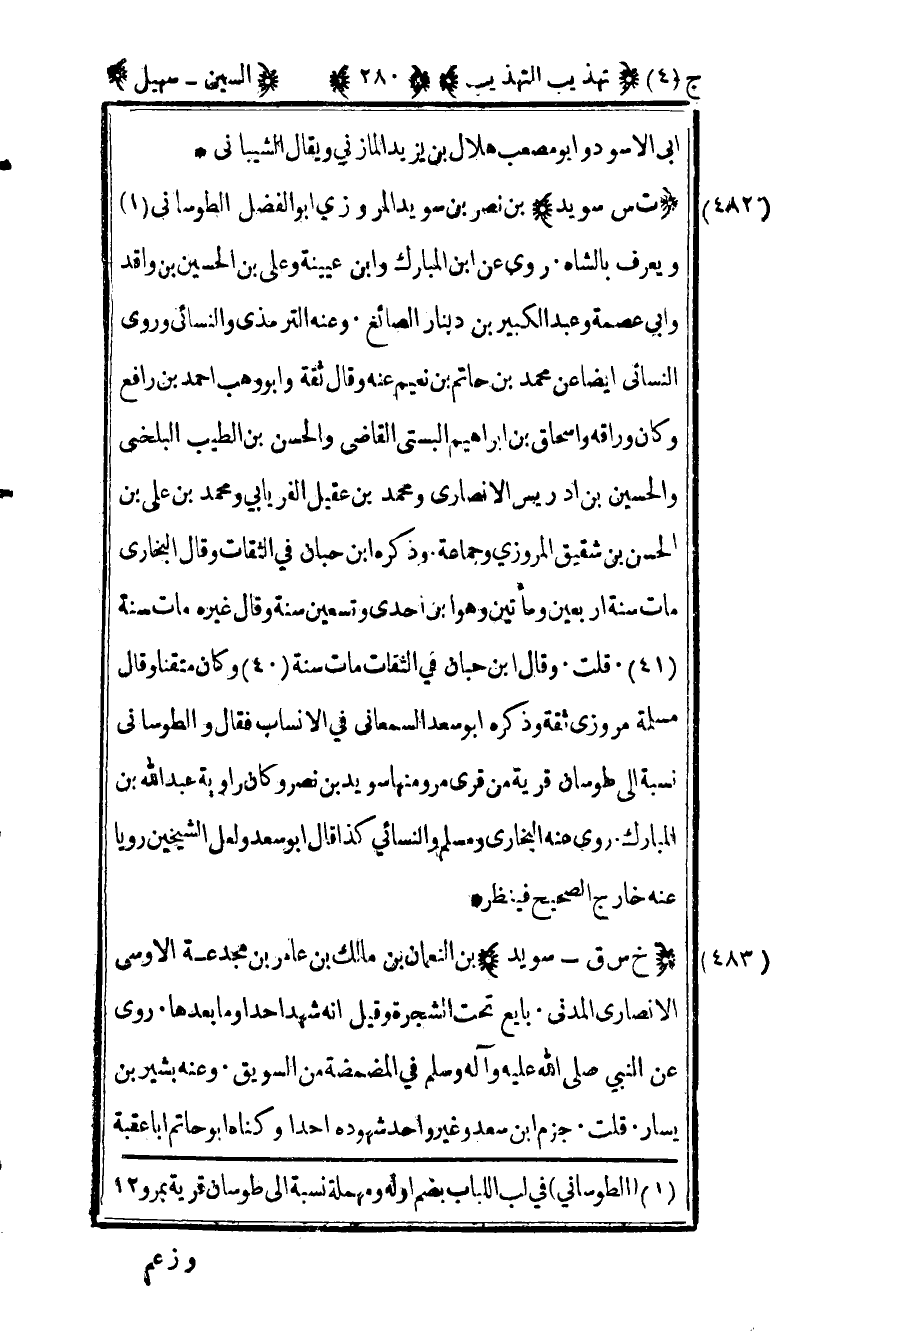 ج (٤) ﴿ تهذيب التهذيب ﴾ ﴿ ٢٨٠ ﴾ ﴿ السين - سهيل ﴾
ابى الاسود وابو مصعب هلال بن يزيد المازني ويقال الشيبانى *
(٤٨٢) ﴿ ت س سويد ﴾ بن نصر بن سويد المروزي ابو الفضل الطوسانى (١)
ويعرف بالشاه · روى عن ابن المبارك وابن عيينة وعلى بن الحسين بن واقد
وابي عصمة وعبد الكبير بن دينار الصائغ · وعنه الترمذى والنسائى وروى
النسائى ايضا عن محمد بن حاتم بن نعيم عنه وقال ثقة وابو وهب احمد بن رافع
وكان وراقه واسحاق بن ابراهيم البستى القاضى والحسن بن الطيب البلخى
والحسين بن ادريس الانصارى ومحمد بن عقيل الفريابي ومحمد بن على بن
الحسن بن شقيق المروزي وجماعة · وذكره ابن حبان في الثقات وقال البخارى
مات سنة اربعين ومأتين وهو ابن احدى وتسعين سنة وقال غيره مات سنة
(٤١) · قلت · وقال ابن حبان في الثقات مات سنة (٤٠) وكان متقنا وقال
مسلمة مروزى ثقة وذكره ابو سعد السمعانى في الانساب فقال والطوسانى
نسبة الى طوسان قرية من قرى مرو منها سويد بن نصر وكان راوية عبد الله بن
المبارك · روى عنه البخارى ومسلم والنسائي كذا قال ابو سعد ولعل الشيخين رويا
عنه خارج الصحيح فينظر *
(٤٨٣) ﴿ خ س ق - سويد ﴾ بن النعمان بن مالك بن عامر بن مجدعة الاوسى
الانصارى المدنى · بايع تحت الشجرة وقيل انه شهد احدا وما بعدها · روى
عن النبي صلى الله عليه وآله وسلم في المضمضة من السويق · وعنه بشير بن
يسار · قلت · جزم ابن سعد وغير واحد شهوده احدا وكناه ابو حاتم ابا عقبة
(١) الطوساني) في لب اللباب بضم اوله ومهملة نسبة الى طوسان قرية بمرو ١٢
وزعم